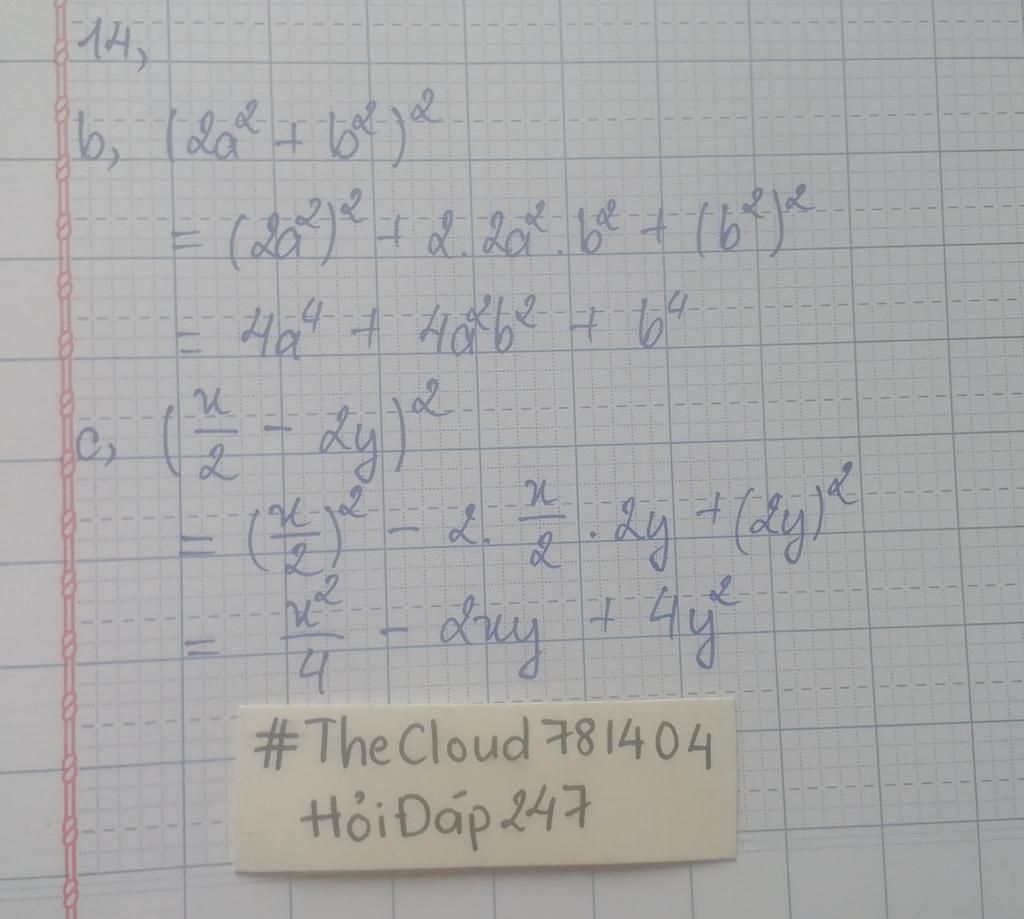 14,
b, (2a² + b²)²
= (2a²)² + 2. 2a² . b² + (b²)²
= 4a⁴ + 4a²b² + b⁴
c, (x/2 - 2y)²
= (x/2)² - 2. x/2 . 2y + (2y)²
= x²/4 - 2xy + 4y²
#TheCloud781404
HỏiĐáp247